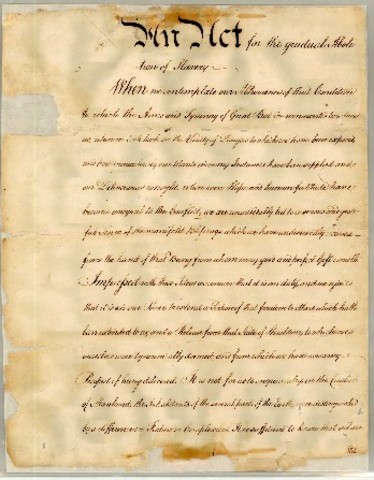 An Act for the gradual Aboli
tion of Slavery
When we contemplate our Abhorence of that Condition
to which the Arms and Tyranny of Great Britain were exerted to reduce
us, when we look back on the Variety of Dangers to which we have been exposed
and how miraculously our Wants in many Instances have been supplied and
our Deliverances wrought, when even Hope and human fortitude have
become unequal to the Conflict, we are unavoidably led to a serious and grate
ful sense of the manifold Blessings which we have undeservedly received
from the hand of that Being from whom every good and perfect Gift cometh
Impressed with these Ideas we conceive that it is our duty, and we rejoice
that it is in our Power, to extend a Portion of that freedom to others, which hath
been extended to us, and a Release from that State of Thraldom, to which we
ourselves were tyrannically doomed, and from which we have now every
Prospect of being delivered. It is not for us to enquire, why, in the Creation
of Mankind, the Inhabitants of the several parts of the Earth, were distinguished
by a difference in Feature or Complexion. It is sufficient to know that all are